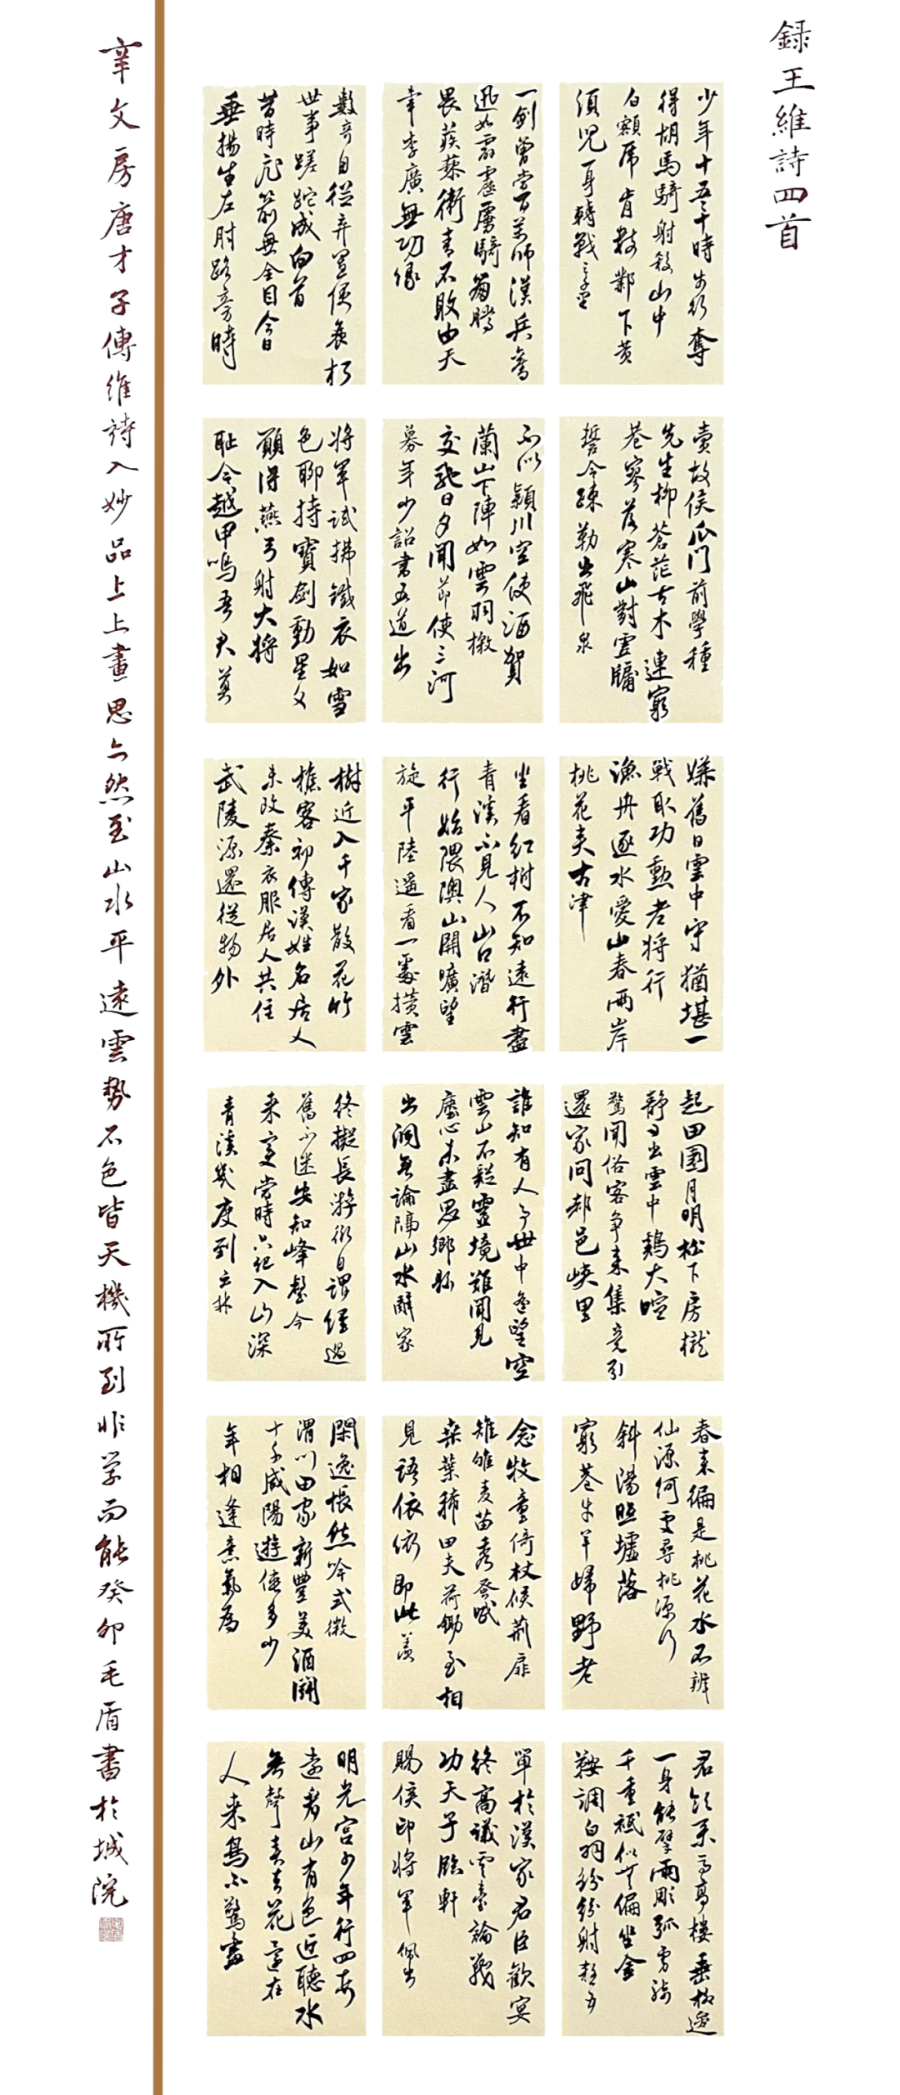 録王維詩四首
少年十五二十時步行奪
得胡馬騎射殺山中
白額虎肯數鄴下黃
須兒一身轉戰三千里
一劍曾當百萬師漢兵奮
迅如霹靂虜騎奔騰
畏蒺藜衛青不敗由天
幸李廣無功緣
數奇自從弃置便衰朽
世事蹉跎成白首
昔時飛箭無全目今日
垂楊生左肘路旁時
賣故侯瓜門前學種
先生柳蒼茫古木連窮
巷寥落寒山對虛牖
誓令疎勒出飛泉
不似潁川空使酒賀
蘭山下陣如雲羽檄
交馳日夕聞節使三河
募年少詔書五道出
將軍試拂鐵衣如雪
色聊持寶劍動星文
願得燕弓射大將
耻令越甲鳴吾君莫
嫌舊日雲中守猶堪一
戰取功勳老將行
漁舟逐水愛山春兩岸
桃花夾古津
坐看紅樹不知遠行盡
青溪不見人山口潛
行始隈隩山開曠望
旋平陸遥看一處攢雲
樹近入千家散花竹
樵客初傳漢姓名居人
未改秦衣服居人共住
武陵源還從物外
起田園月明松下房櫳
靜日出雲中鷄犬喧
驚聞俗客爭來集竟引
還家問都邑峽里
誰知有人事世中遙望空
雲山不疑靈境難聞見
塵心未盡思鄉縣
出洞無論隔山水辭家
終擬長游衍自謂經過
舊不迷安知峰壑今
来變當時只記入山深
青溪幾度到雲林
春来徧是桃花水不辨
仙源何處尋桃源行
斜陽照墟落
窮巷牛羊歸野老
念牧童倚杖候荆扉
雉雊麥苗秀蠶眠
桑葉稀田夫荷鋤至相
見語依依即此羨
閑逸悵然吟式微
渭川田家新豐美酒鬬
十千咸陽遊俠多少
年相逢意氣為
君飲系馬高樓垂柳邊
一身能擘兩彫弧虜騎
千重祗似無偏坐金
鞍調白羽紛紛射殺五
單於漢家君臣歡宴
終高議雲臺論戰
功天子臨軒
賜侯印將軍佩出
明光宮少年行四首
遠看山有色近聽水
無聲春去花還在
人来鳥不驚畫
辛文房唐才子傳維詩入妙品上上畫思亦然至山水平遠雲勢石色皆天機所到非学而能癸卯毛盾書於城院